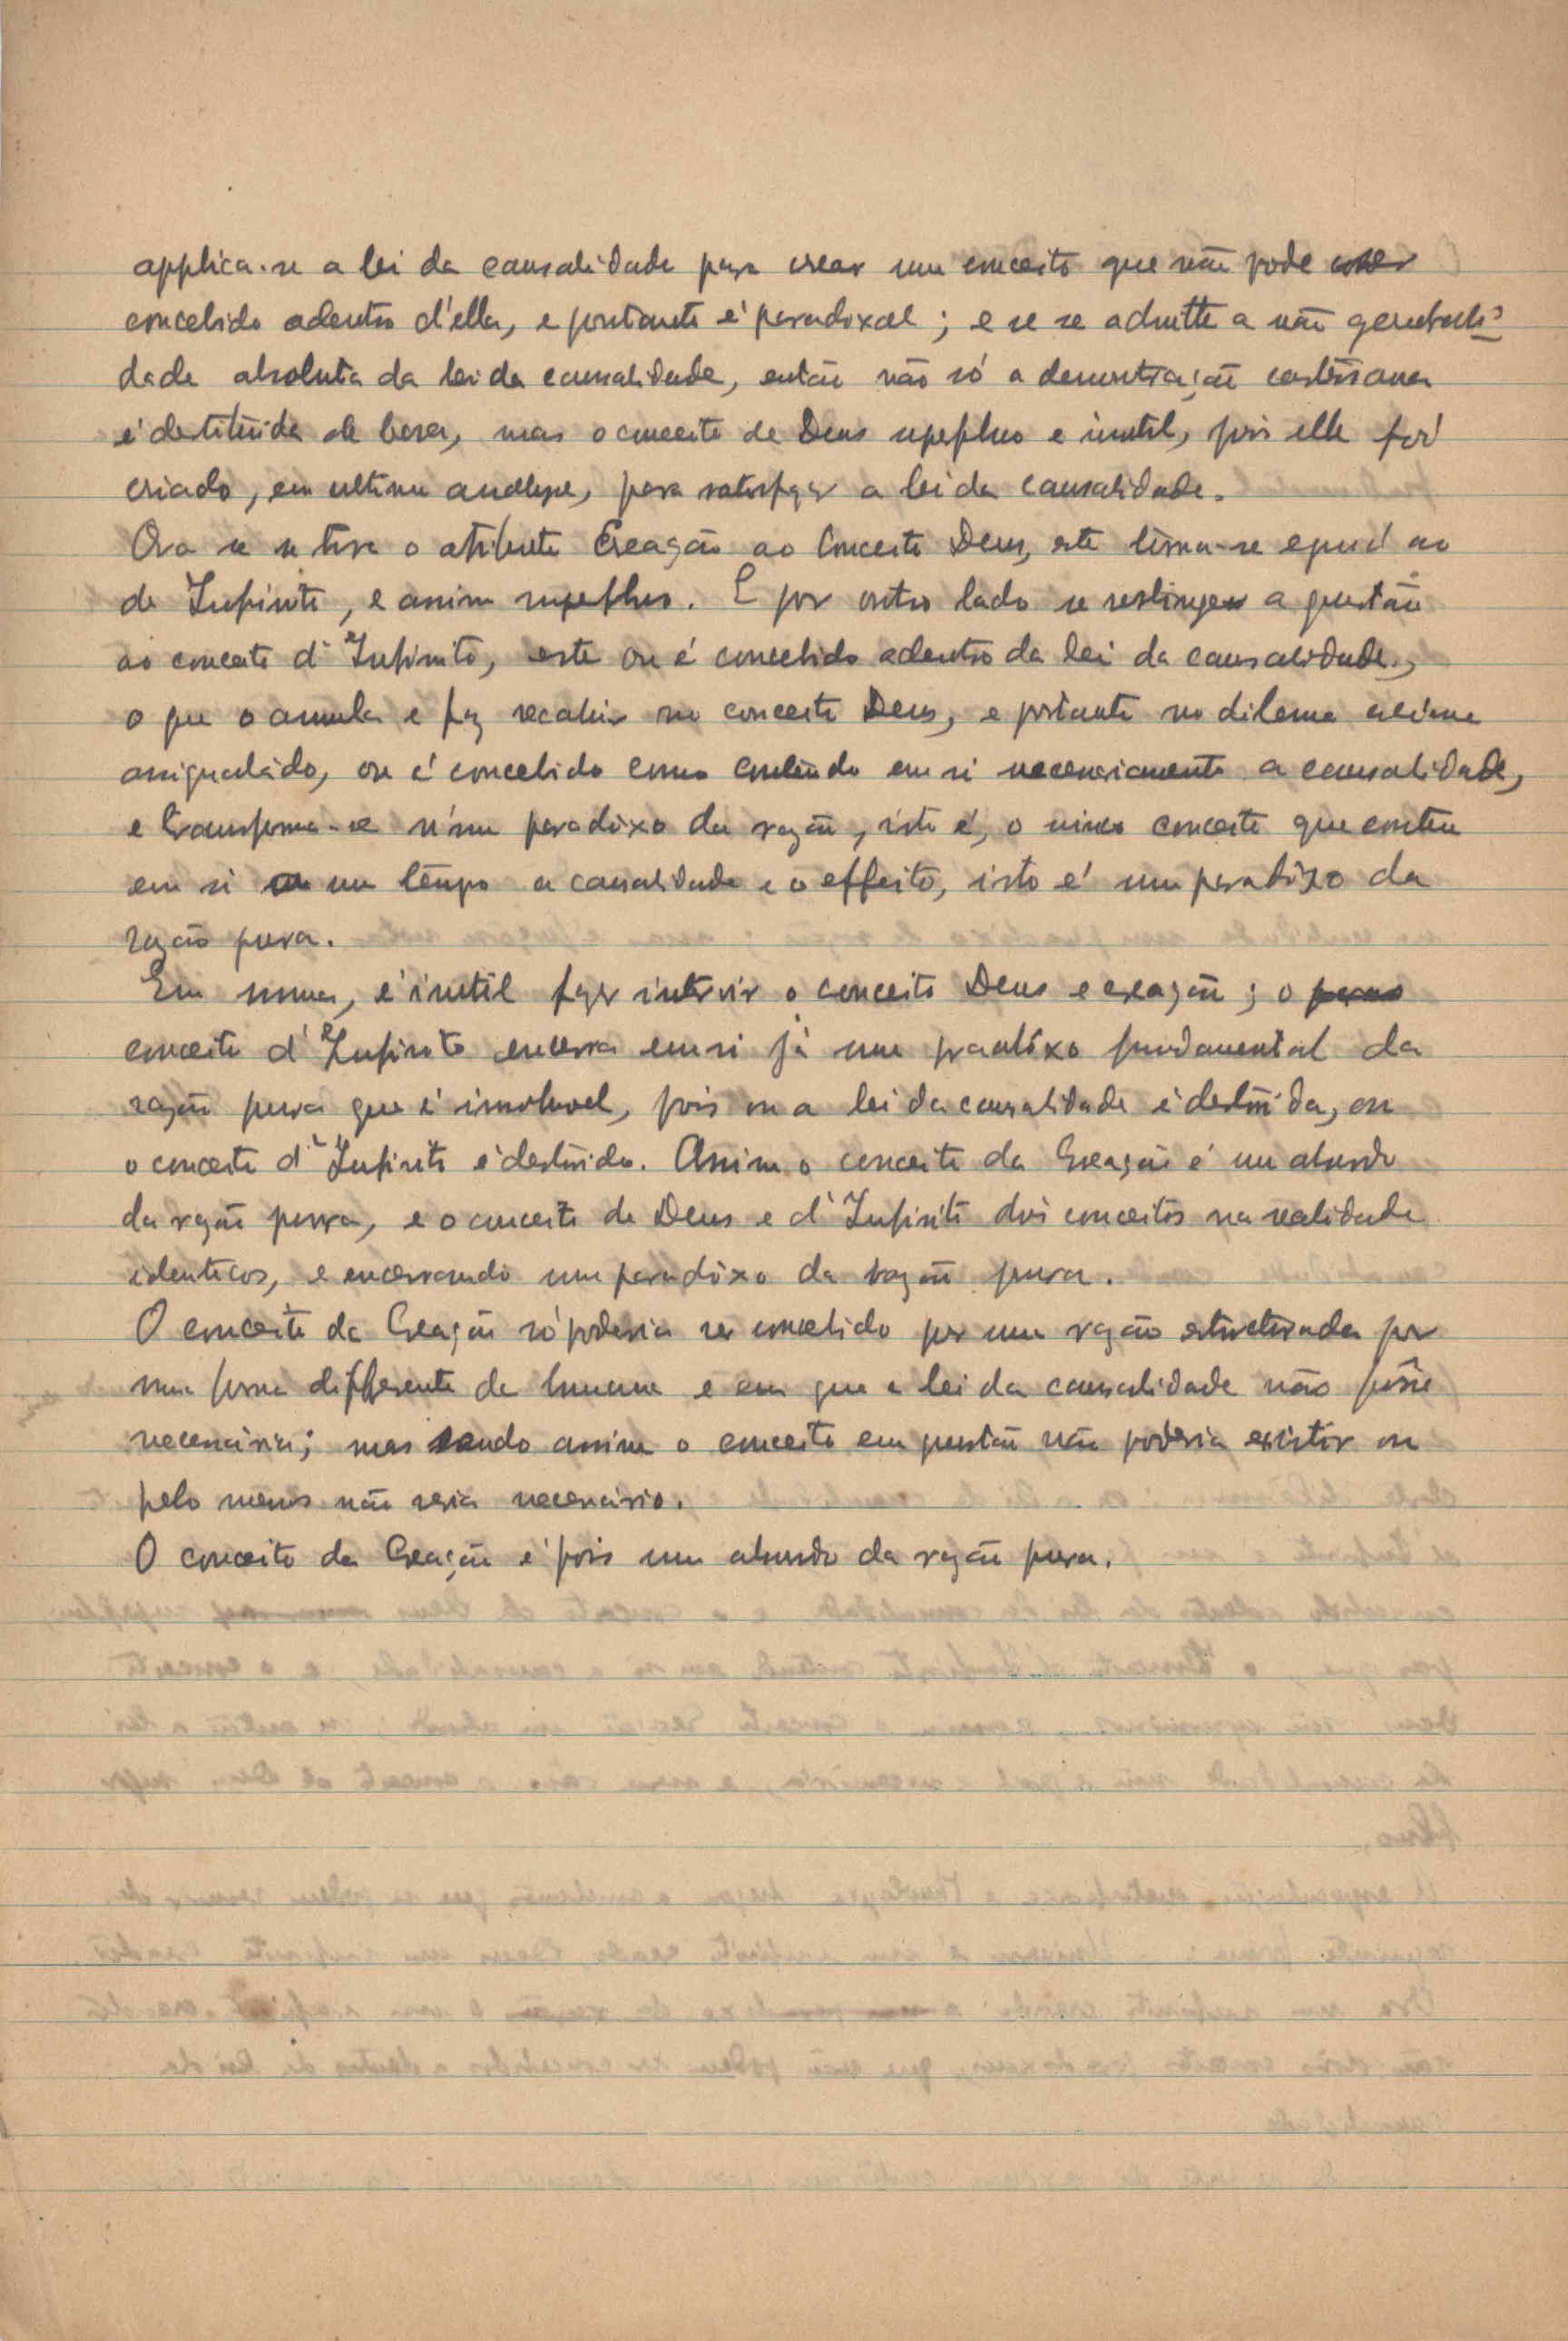 applica-se a lei da causalidade para crear um conceito que não pode ser
concebido adentro d'ella, e portanto é paradoxal; e se se admitte a não generali-
dade absoluta da lei da causalidade, então não só a demonstração cartesiana
é destituida de base, mas o conceito de Deus superfluo e inutil, pois elle foi
criado, em ultima analyse, para satisfazer a lei da causalidade.
Ora se se tira o atributo Creação ao Conceito Deus, este torna-se egual ao
de Infinito, e assim superfluo. E por outro lado se restringe a questão
ao conceito d'Infinito, este ou é concebido adentro da lei da causalidade,
o que o annula e faz recahir no conceito Deus, e portanto no dilema acima
assignalado, ou é concebido como contendo em si necessariamente a causalidade,
e transforma-se n'um paradoxo da razão, isto é, o unico conceito que contem
em si a um tempo a causalidade e o effeito, isto é um paradoxo da
razão pura.
Em summa, é inutil fazer intervir o conceito Deus e creação; o
conceito d'Infinito encerra em si já um paradoxo fundamental da
razão pura que é insoluvel, pois ou a lei da causalidade é destruida, ou
o conceito d'Infinito é destruido. Assim o conceito da Creação é um absurdo
da razão pura, e o conceito de Deus e d'Infinito dois conceitos na realidade
identicos, e encerrando um paradoxo da razão pura.
O conceito da Creação só poderia ser concebido por uma razão estructurada por
uma forma differente da humana e em que a lei da causalidade não fosse
necessaria; mas sendo assim o conceito em questão não poderia existir ou
pelo menos não seria necessario.
O conceito da Creação é pois um absurdo da razão pura.